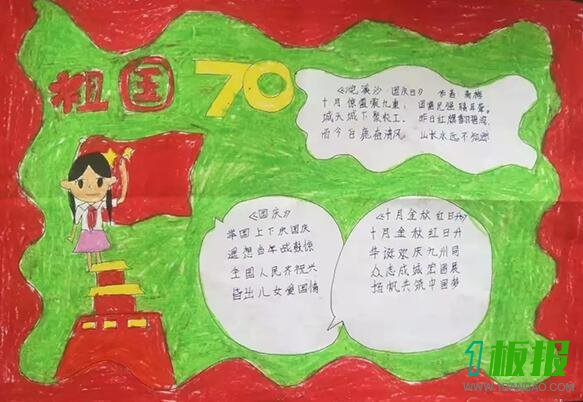 祖国70
《浣溪沙·国庆日》
十月惊雷震九重 国盛民强
城天城下聚 工 昨日红旗
而今百 清风 山长水远不
《国庆》
举国上下庆国庆
遥想当年战鼓惊
全国人民齐祝兴
皆出儿女爱国情
《十月金秋红日升》
十月金秋红日升
华诞欢庆九州同
众志成城宏图展
扬帆共筑中国梦
1板报
WWW.1BANBAO.COM